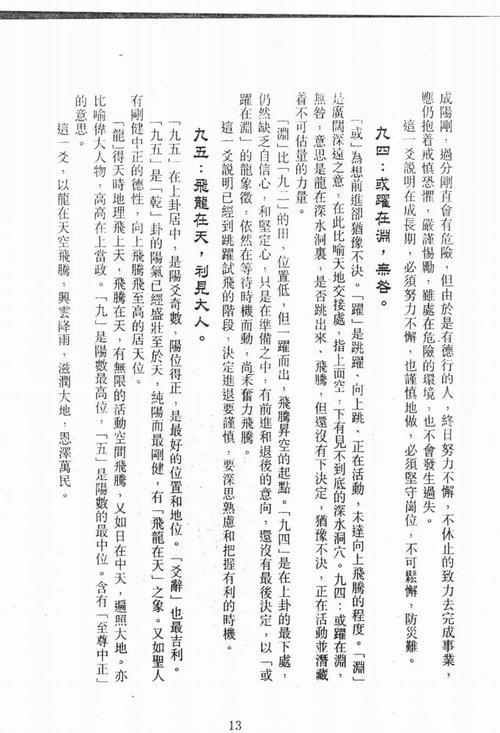 成陽剛；過分剛直會有危險，但由於是有德行的人，終日努力不懈，不休止的致力去完成事業，
應仍抱着戒慎恐懼，嚴謹惕勵，雖處在危險的環境，也不會發生過失。
這一爻說明在成長期，必須努力不懈，也謹慎地做，必須堅守崗位，不可鬆懈，防災難。
九四：或躍在淵，無咎。
「或」為想前進卻猶豫不決。「躍」是跳躍、向上跳、正在活動，未達向上飛騰的程度。「淵」
是廣闊深遠之意，在此比喻天地交接處，指上面空，下有見不到底的深水洞穴。九四：或躍在淵，
無咎，意思是龍在深水洞裏，是否跳出來、飛騰，但還沒有下決定，猶豫不決，正在活動並潛藏
着不可估量的力量。
「淵」比「九二」的田，位置低，但一躍而出，飛騰昇空的起點。「九四」是在上卦的最下處，
仍然缺乏自信心，和堅定心，只是在準備之中，有前進和退後的意向，還沒有最後決定，以「或
躍在淵」的龍象徵，依然在等待時機而動，尚未奮力飛騰。
這一爻說明已經到跳躍試飛的階段，決定進退要謹慎，要深思熟慮和把握有利的時機。
九五：飛龍在天，利見大人。
「九五」在上卦居中，是陽爻奇數，陽位得正，是最好的位置和地位。「爻辭」也最吉利。
「九五」是「乾」卦的陽氣已經盛壯至於天，純陽而最剛健，有「飛龍在天」之象。又如聖人
有剛健中正的德性，向上飛騰飛至高的居天位。
「龍」得天時地理飛上天，飛騰在天，有無限的活動空間飛騰，又如日在中天，遍照大地。亦
比喻偉大人物，高高在上當政。「九」是陽數最高位，「五」是陽數的最中位。含有「至尊中正」
的意思。
這一爻，以龍在天空飛騰，興雲降雨，滋潤大地，恩澤萬民。
13